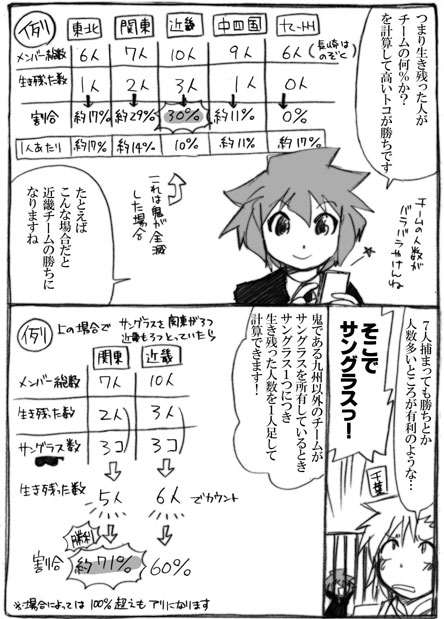 つまり生き残った人が
チームの何％か？
を計算して高いトコが勝ちです
例
東北 関東 近畿 中四国 九州
メンバー総数 6人 7人 10人 9人 6人 (長崎は
のぞく)
生き残った数 1人 2人 3人 1人 0人
割合 約17% 約29% 30% 約11% 0%
1人あたり 約17% 約14% 10% 約11% 約17%
これは鬼が全滅
した場合
チームの人数が
バラバラやけんね
たとえば
こんな場合だと
近畿チームの勝ちに
なりますね
7人捕まっても勝ちとか
人数多いところが有利のような…
千葉
そこで
サングラスっ！
鬼である九州以外のチームが
サングラスを所有しているとき
サングラス1つにつき
生き残った人数を1人足して
計算できます！
例 上の場合で サングラスを関東が3つ
近畿も3つとっていたら
関東 近畿
メンバー総数 7人 10人
生き残った数 2人 3人
サングラス数 3コ 3コ
生き残った数 5人 6人 でカウント
勝利
割合 約71% 60%
※場合によっては100%超えもアリになります